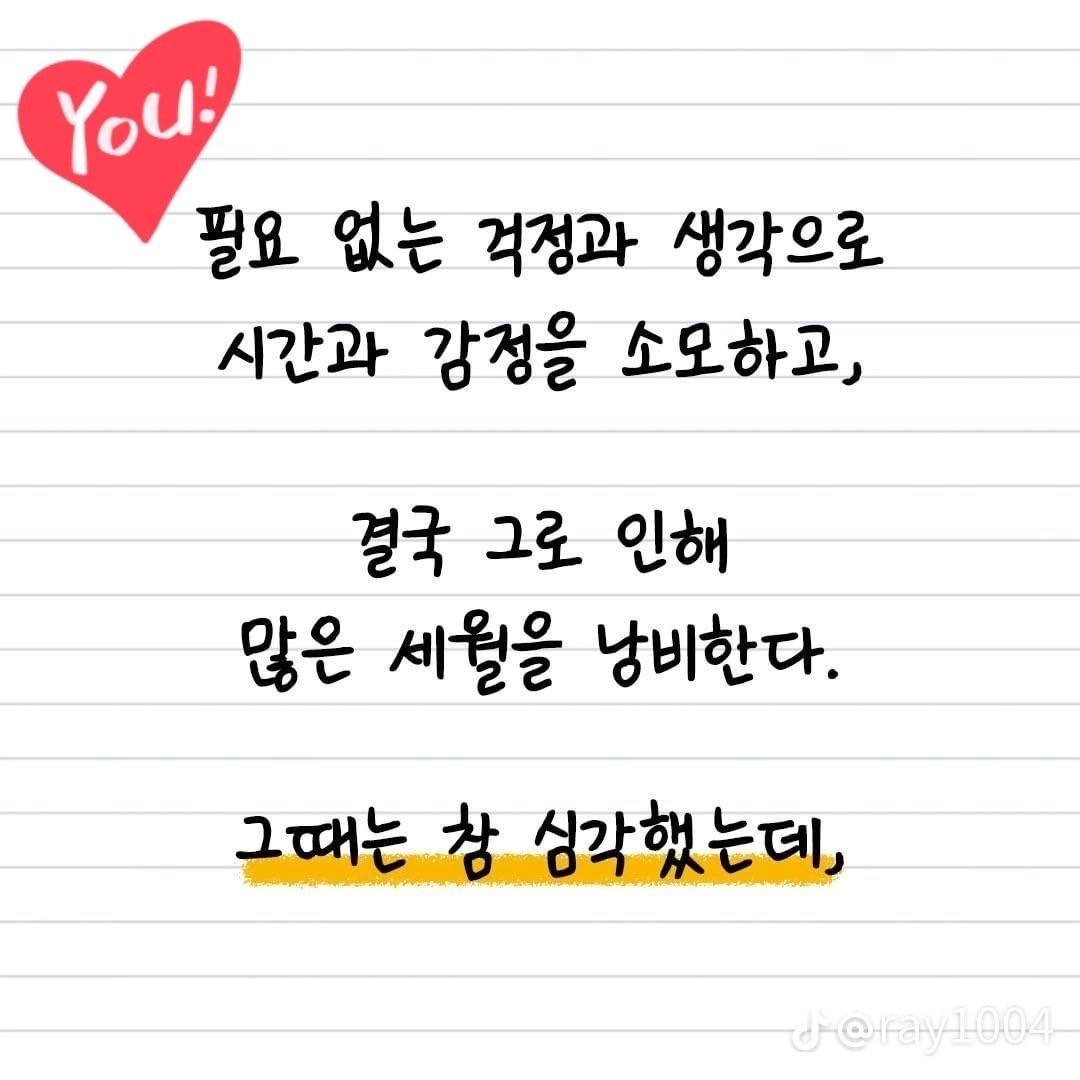 You!
필요 없는 걱정과 생각으로
시간과 감정을 소모하고,
결국 그로 인해
많은 세월을 낭비한다.
그때는 참 심각했는데,
@ray1004